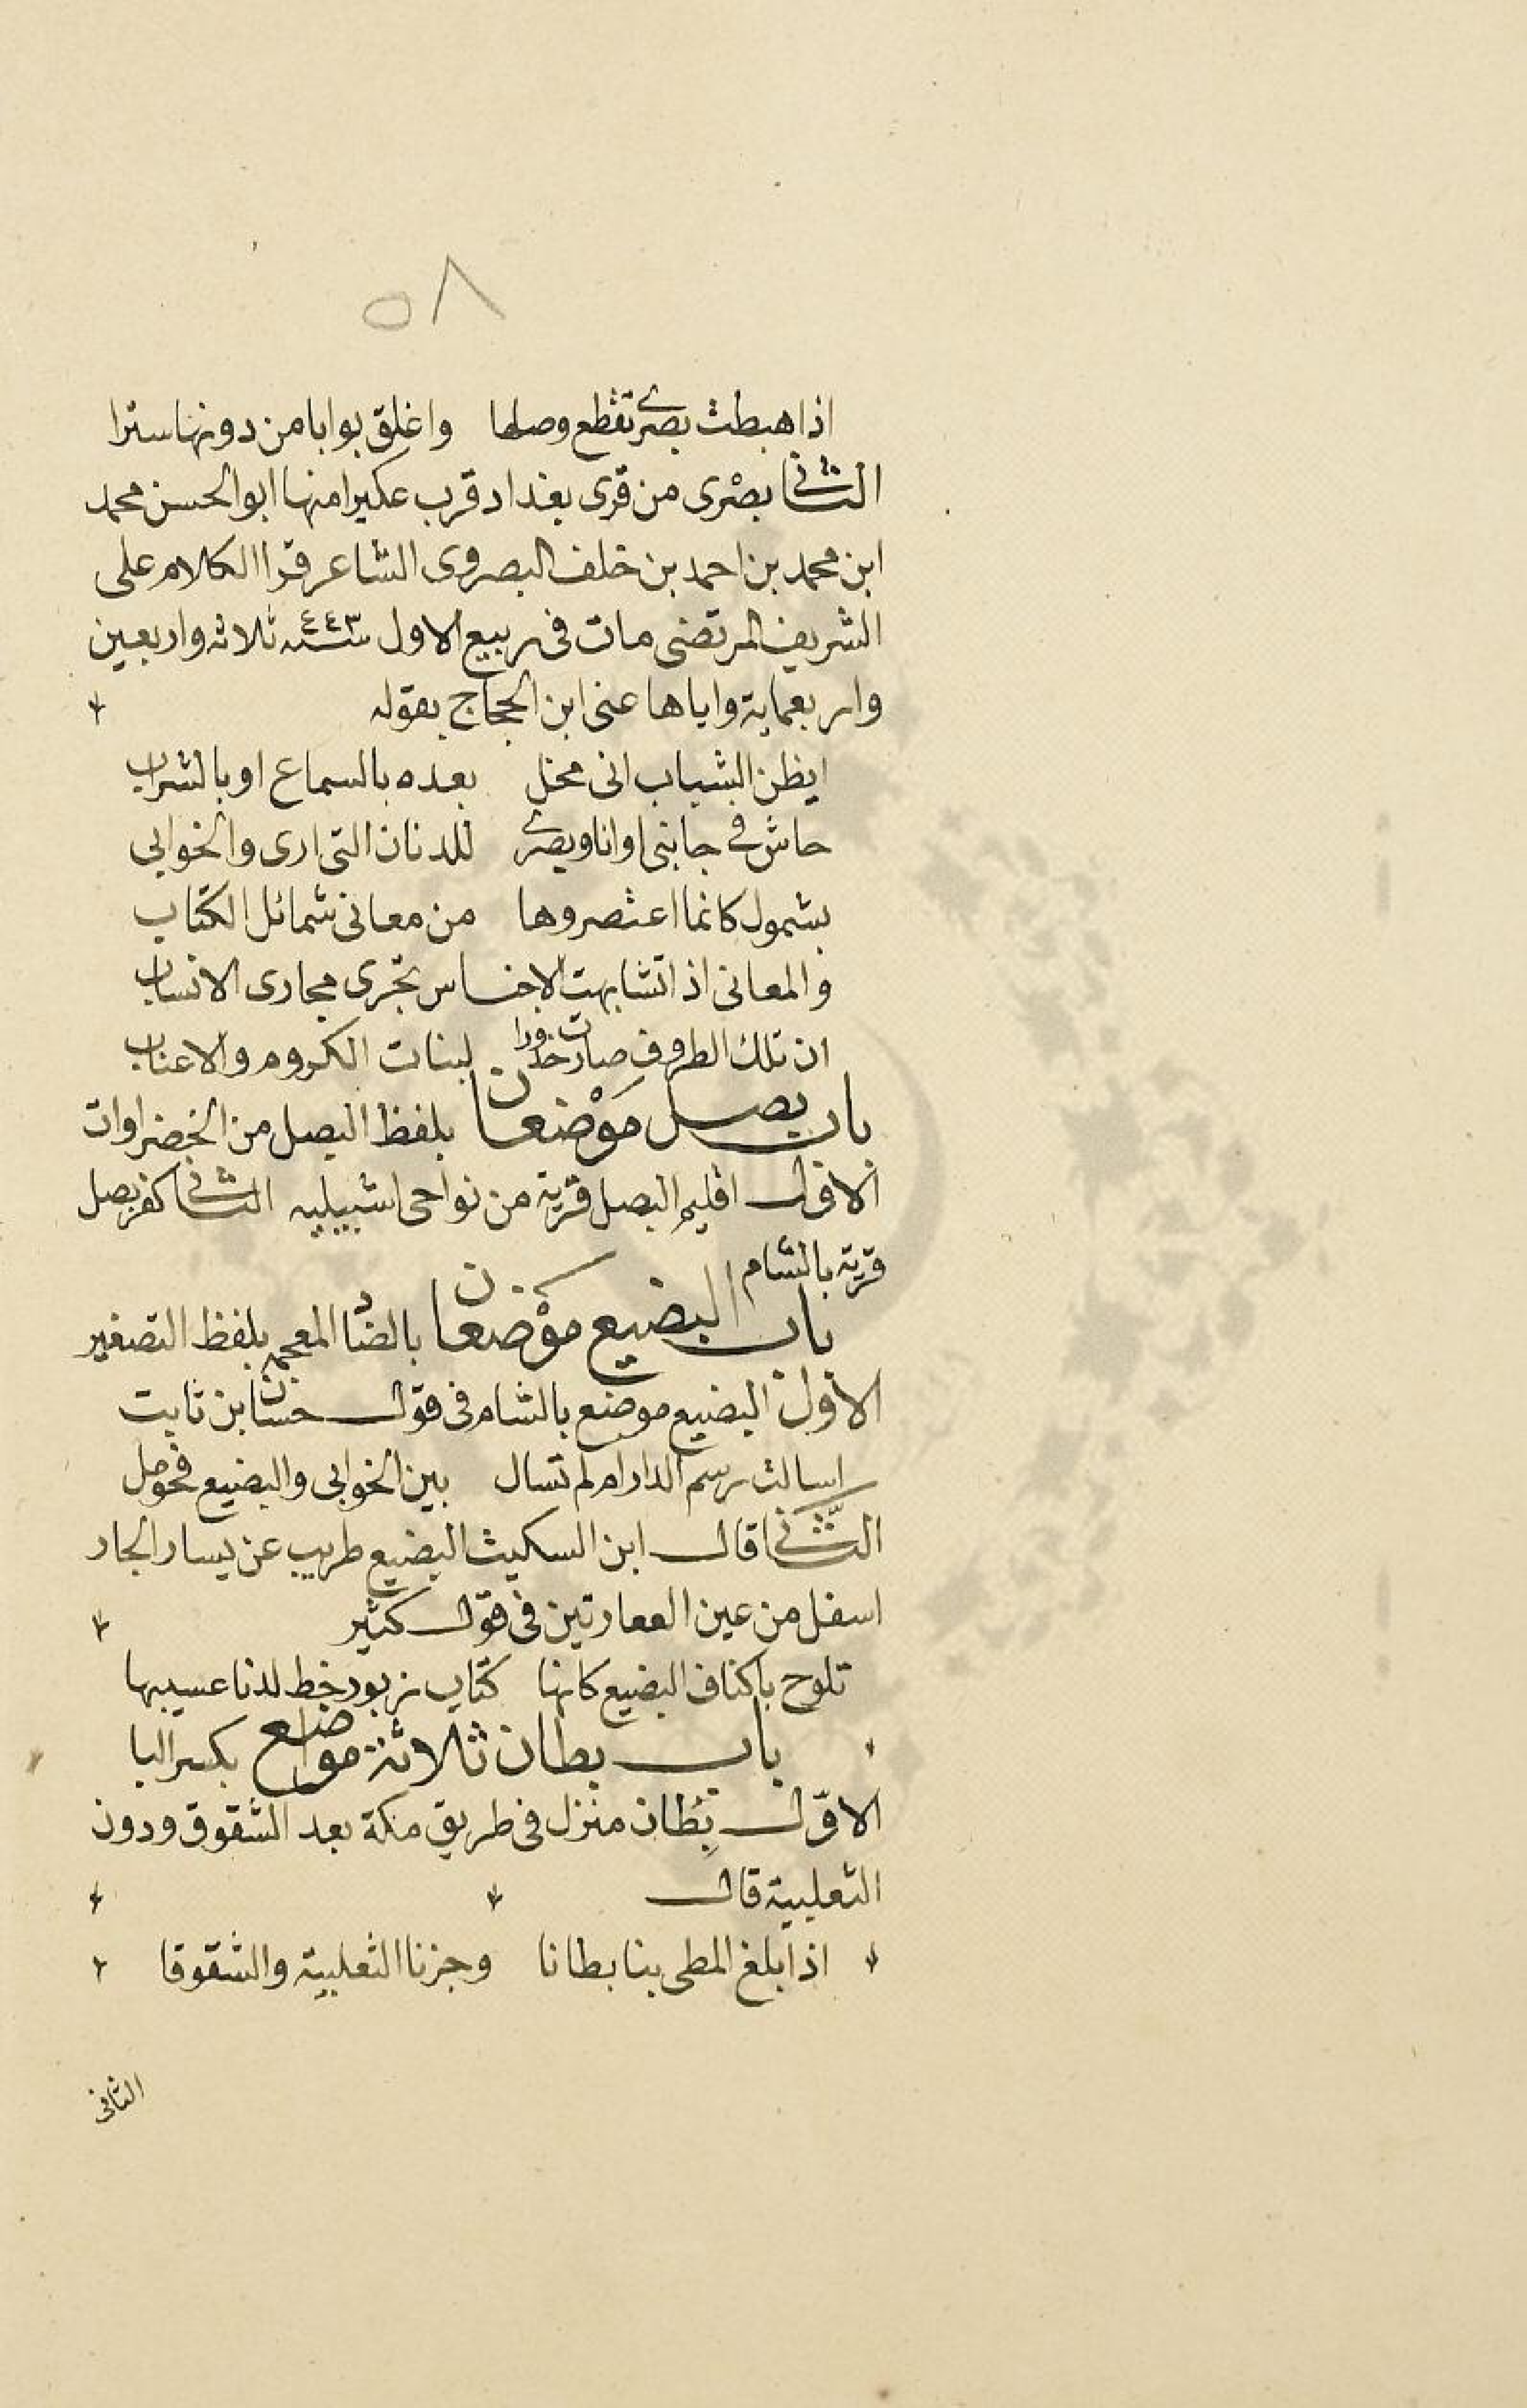 ٥٨
اذا هبطت بصرى تقطع وصلها واغلق بوابا من دونها سترا
الثانى بصْرى من قرى بغداد قرب عكبرا منها ابو الحسن محمد
ابن محمد بن احمد بن خلف البصروى الشاعر قرا الكلام على
الشريف المرتضى مات فى ربيع الاول سنة ٤٤٣ ثلاثه واربعين
واربعماية واياها عنى ابن الحجاج بقوله
ايظن الشباب انى مخل بعده بالسماع او بالشراب
حاش فى جانبى اوانا وبصرى للدنان التى ارى والخوابى
بشمول كانما اعتصروها من معانى شمائل الكتاب
والمعانى اذا تشابهت الاجناس تجرى مجارى الانساب
ان تلك الظروف صارت خدورا لبنات الكروم والاعناب
باب بصل مَوْضعان بلفظ البصل من الخضراوات
الاول اقليم البصل قرية من نواحى اشبيليه الثانى كفر بصل
قرية بالشام
باب البضيع موْضعان بالضاد المعجمه بلفظ التصغير
الاول البضيع موضع بالشام فى قول حسان بن ثابت
اسالت رسم الدار ام لم تسال بين الخوابى والبضيع فحومل
الثّانى قال ابن السكيت البضيع ظريب عن يسار الجار
اسفل من عين الغفارتين فى قول كثير
تلوح باكناف البضيع كانها كتاب زبور خط لدنا عسيبها
باب بطان ثلاثة مواضع بكسر البا
الاوّل بِطان منزل فى طريق مكة بعد الشقوق ودون
الثعلبية قال
اذا بلغ المطى بنا بطانا وجزنا الثعلبية والشقوقا
الثانى